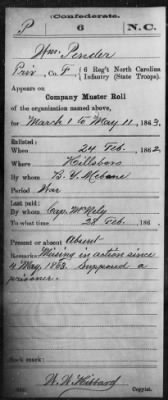 Confederate.
P 6 N.C.
Wm. Pender
Priv, Co. F, 6 Reg't North Carolina
Infantry (State Troops).
Appears on
Company Muster Roll
of the organization named above,
for March 1 to May 11, 1863.
Enlisted:
When 24 Feb., 1862.
Where Hillsboro
By whom B. Y. Mebane
Period War
Last paid:
By whom Cap. McNely
To what time 28 Feb., 186
Present or absent Absent
Remarks: Missing in action since
4 May, 1863. Supposed a
prisoner.
Book mark:
W. W. Hibbard
Copyist.